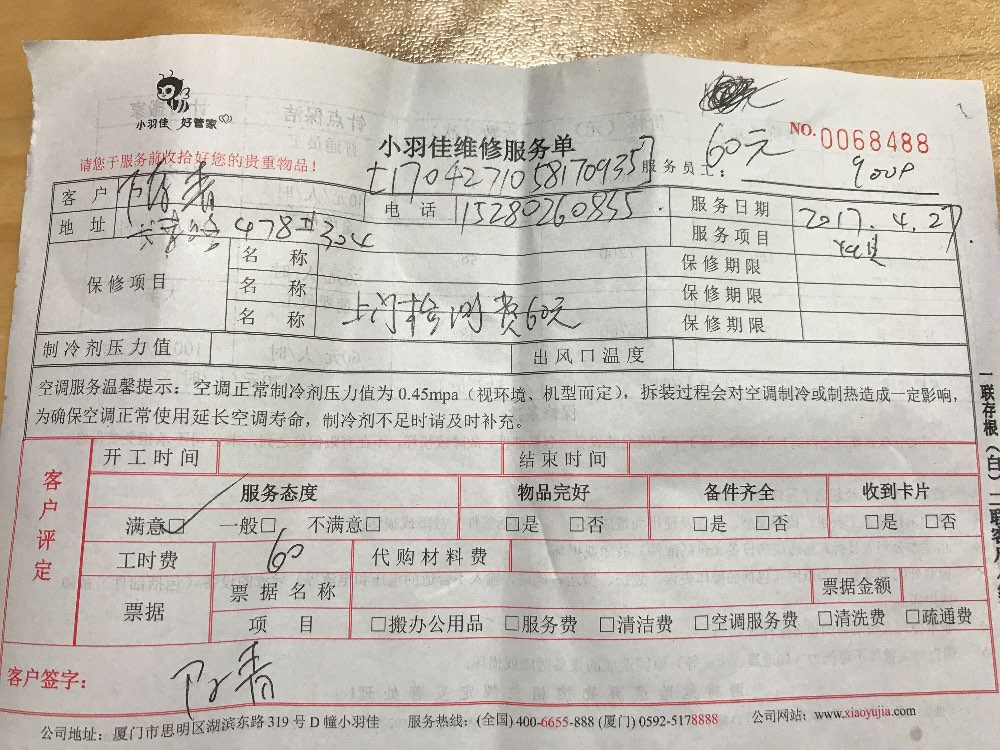 小羽佳 好管家
60元
NO. 0068488
请您于服务前收拾好您的贵重物品！
小羽佳维修服务单
t17042710581709357
服务员工：
客户
电话 15280260835
服务日期 2017.4.27
地址 478 304
服务项目
保修项目
名称 保修期限
名称 保修期限
名称 上门检测费60元 保修期限
制冷剂压力值 出风口温度
空调服务温馨提示：空调正常制冷剂压力值为0.45mpa（视环境、机型而定），拆装过程会对空调制冷或制热造成一定影响，
为确保空调正常使用延长空调寿命，制冷剂不足时请及时补充。
客户评定
开工时间 结束时间
服务态度 物品完好 备件齐全 收到卡片
满意□ 一般□ 不满意□ □是 □否 □是 □否 □是 □否
工时费 60 代购材料费
票据 票据名称 票据金额
项目 □搬办公用品 □服务费 □清洁费 □空调服务费 □清洗费 □疏通费
客户签字：
公司地址：厦门市思明区湖滨东路319号D幢小羽佳 服务热线：(全国) 400-6655-888 (厦门) 0592-5178888 公司网站：www.xiaoyujia.com
一联存根（白）二联客户